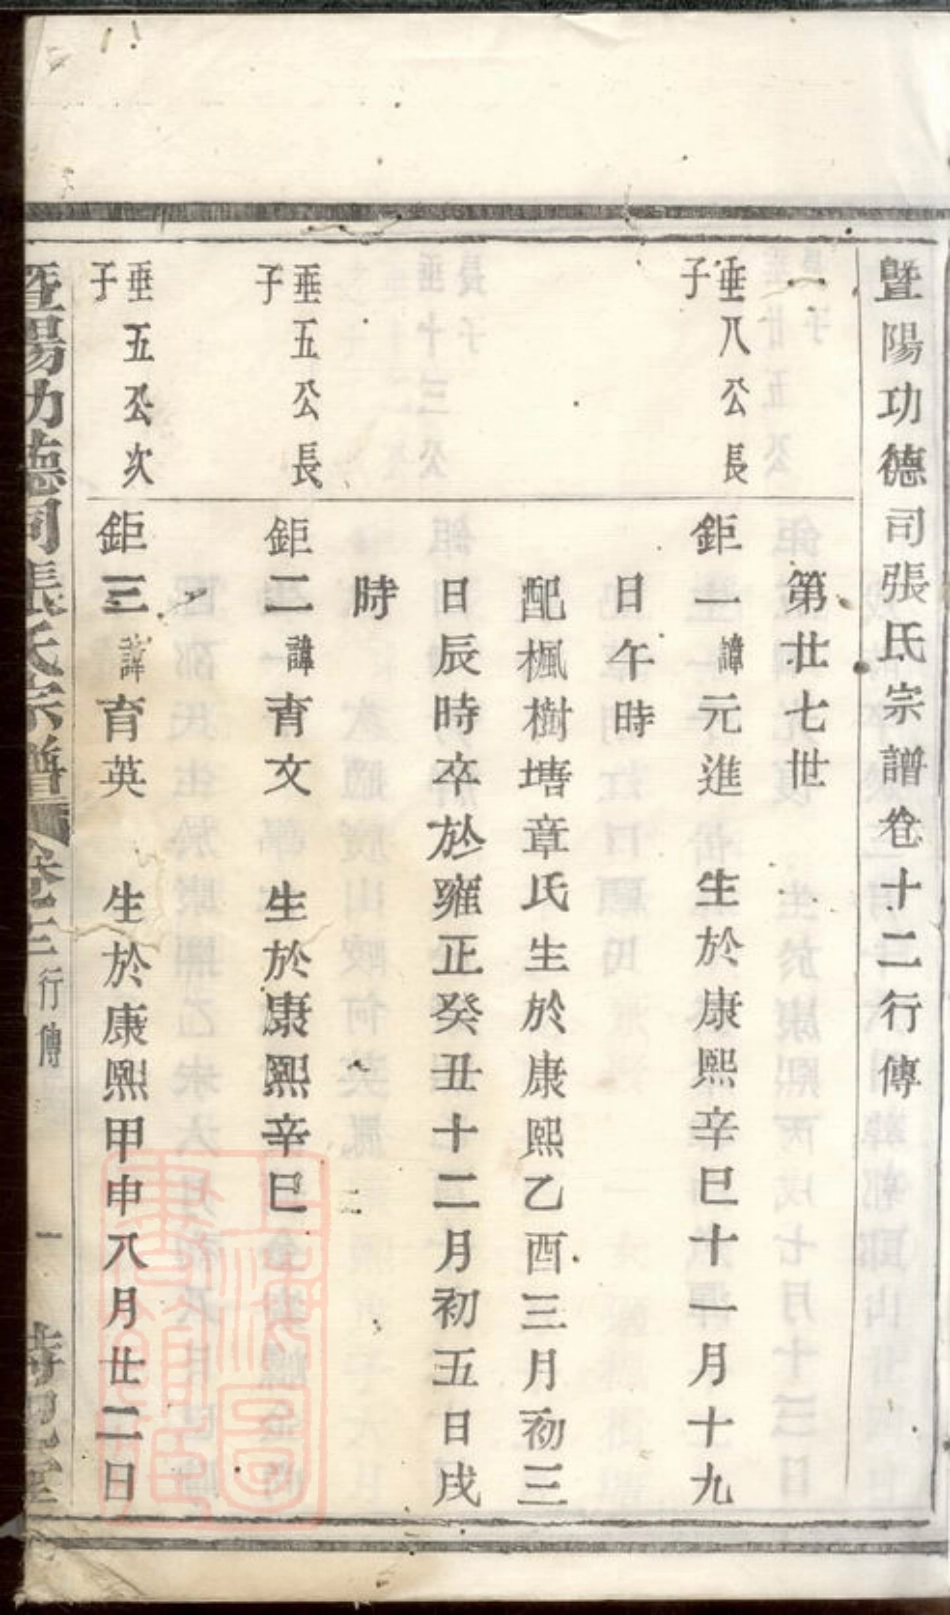 暨陽功德司張氏宗譜卷十二行傳
第廿七世
垂八公長子
鉅一諱元進 生於康熙辛巳十一月十九
日午時
配楓樹塘章氏生於康熙乙酉三月初三
日辰時卒於雍正癸丑十二月初五日戌
時
垂五公長子
鉅二諱育文 生於康熙辛巳
垂五公次子
鉅三諱育英 生於康熙甲申八月廿二日
暨陽功德司張氏宗譜 卷十二 行傳 一